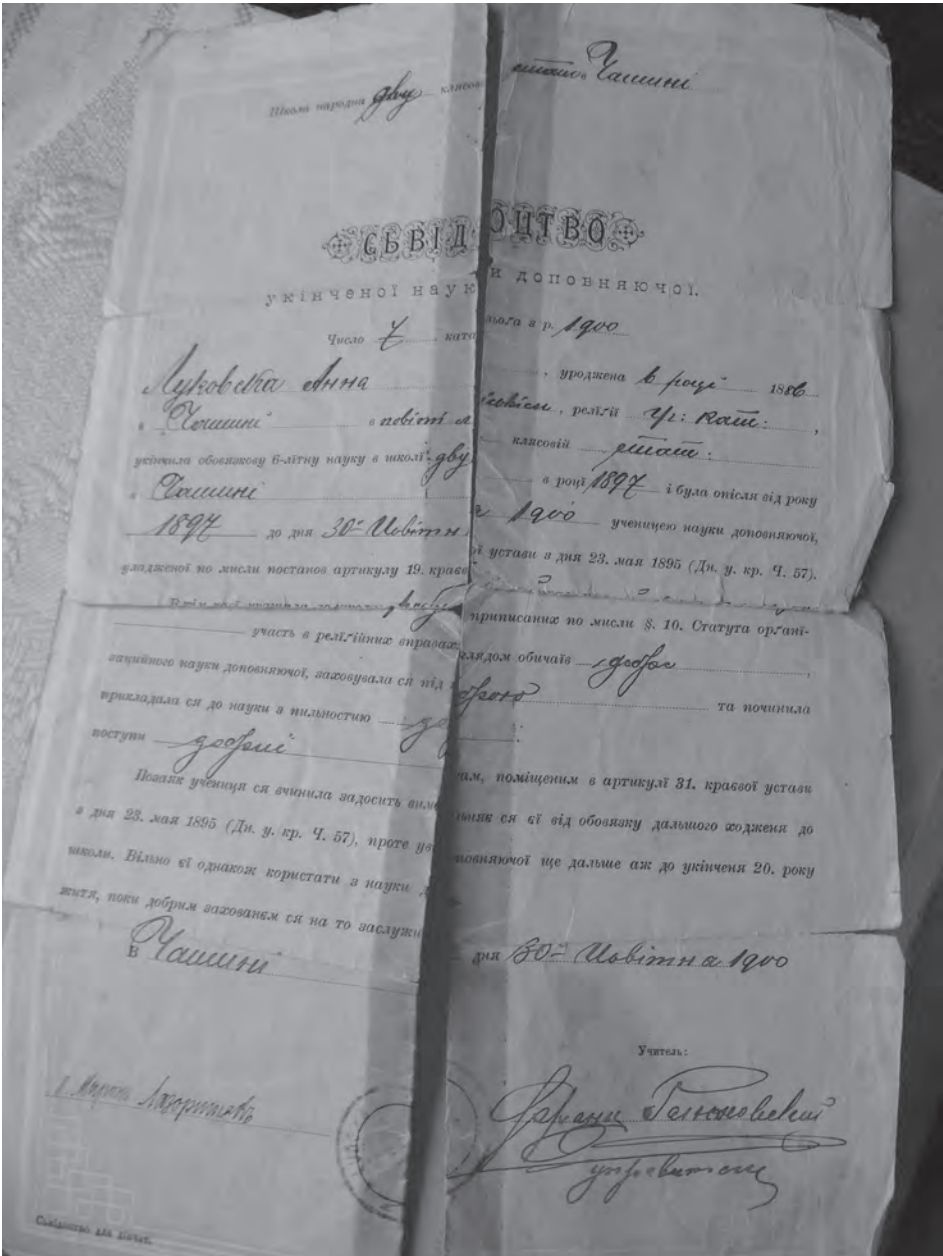 Школа народна дву клясов етат. в Чашині
СЬВІДОЦТВО
укінченої науки доповняючої.
Число 7 ката льоґа з р. 1900
Луковска Анна , уроджена в році 1886
в Чашині в повіт , реліґії гр: кат: ,
укінчила обовязкову 6-літну науку в школі дву клясовій етат:
в Чашині в році 1897 і була опісля від року
1897 до дня 30 1900 ученицею науки доповняючої,
уладженої по мисли постанов артикулу 19. краєвої устави з дня 23. мая 1895 (Дн. у. кр. Ч. 57).
приписаних по мисли §. 10. Статута орґані-
участь в реліґійних вправах
заційного науки доповняючої, заховувала ся під взглядом обичаїв добре ,
прикладала ся до науки з пильностию доброю та починила
поступи добрі
Позаяк учениця ся вчинила задосить вимогам, поміщеним в артикулї 31. краєвої устави
з дня 23. мая 1895 (Дн. у. кр. Ч. 57), проте увільняє ся єї від обовязку дальшого ходженя до
школи. Вільно єї однакож користати з науки доповняючої ще дальше аж до укінченя 20. року
житя, поки добрим захованєм ся на то заслужи
В Чашині дня 30 1900
Учитель:
управитель
Сьвідоцтво для дївчат.